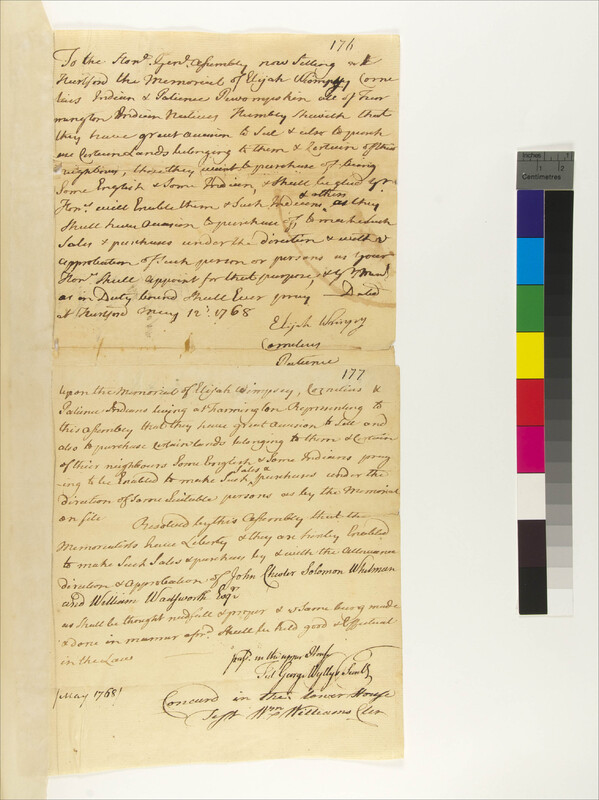 176
To the Honl. Genl. Assembly now sitting at
Hartford the Memorial of Elijah Wimpey Corne
lius Indian & Patience Pewompskin all of Far
mington Indian Natives Humbly Sheweth that
they have great occasion to Sel & also to purch
ase Certain Lands belonging to them & Certain of their
neighbours, those they want to purchase of being
Some English & Some Indian & Shall be glad yr
Honrs will Enable them & Such Indians & others as they
Shall have occasion to purchase of, to make such
Sales & purchases under the direction & with ye
approbation of Such person or persons as your
Honrs Shall appoint for that purpose, & yr Memls
as in Duty bound Shall Ever pray Dated
at Hartford May 12th 1768
Elijah Wimpey
Cornelius
Patience
177
Upon the Memorial of Elijah Wimpsey, Cornelius &
Patience Indians living at Farmington Representing to
this Assembly that they have great occasion to Sell and
also to purchase Certain lands belonging to them & Certain
of their neighbours Some English & Some Indians pray
ing to be Enabled to make Such Sales & purchases under the
direction of Some Suitable persons as by the Memorial
on file
Resolved by this Assembly that the
Memorialists have Liberty & they are hereby Enabled
to make Such Sales & purchases by & with the Allowance
direction & Approbation of John Chester Solomon Whitman
and William Wadsworth Esqrs
as Shall be thought needfull & proper & ye Same being made
& done in manner afrd. Shall be held good & Effectual
in the Law
Pass'd in the upper House
Test George Wyllys Secrety
May 1768
Concurd in the lower House
Test Wm Williams Clerk
Inches
1
1
2
Centimetres